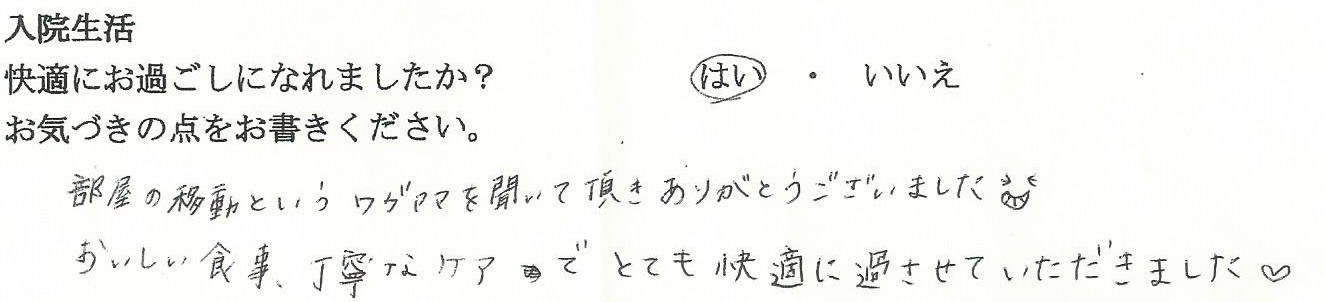 入院生活
快適にお過ごしになれましたか? はい ・ いいえ
お気づきの点をお書きください。
部屋の移動というワガママを聞いて頂きありがとうございました
おいしい食事、丁寧なケアでとても快適に過させていただきました♡